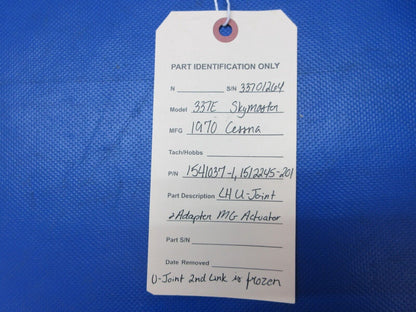 PART IDENTIFICATION ONLY
N S/N 33701264
Model 337E Skymaster
MFG 1970 Cessna
Tach/Hobbs
P/N 1541037-1, 1512245-201
Part Description LH U-Joint
& Adapter MG Actuator
Part S/N
Date Removed
U-Joint 2nd Link is frozen